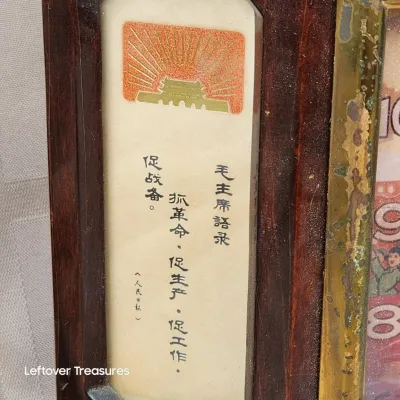 毛主席語录
抓革命，促生产，促工作，
促战备。
《人民日报》
10
9
8
Leftover Treasures